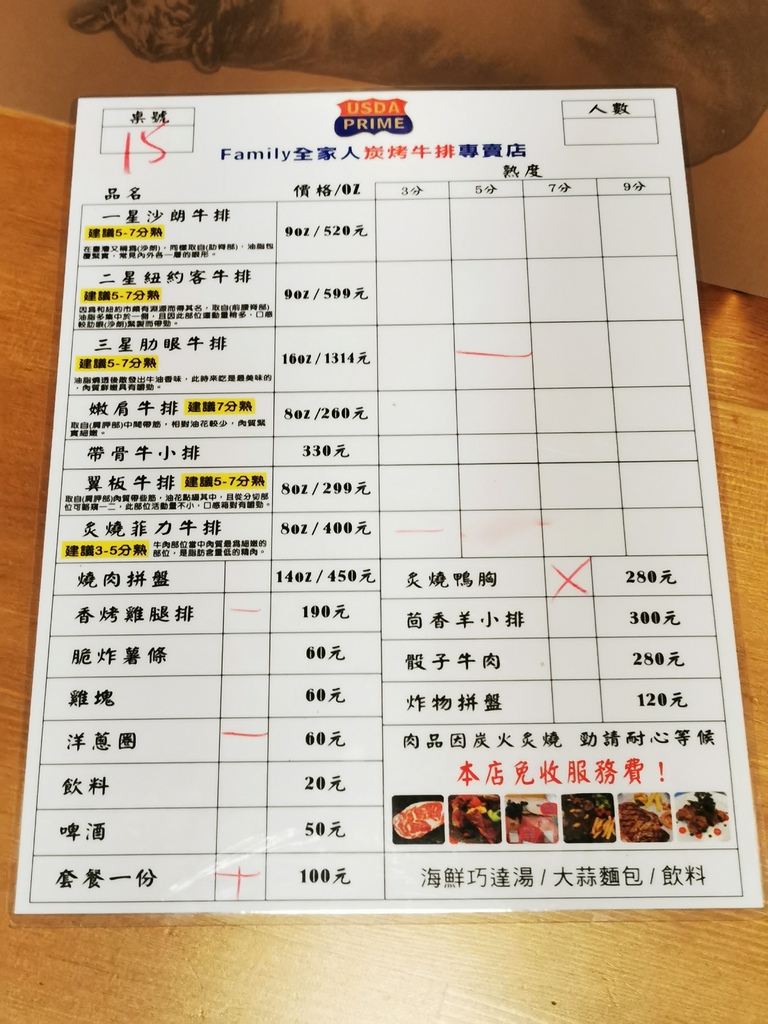 桌號
15
USDA
PRIME
人數
Family全家人炭烤牛排專賣店
熟度
品名 價格/OZ 3分 5分 7分 9分
一星沙朗牛排
建議5-7分熟
9oz/520元
二星紐約客牛排
建議5-7分熟
9oz/599元
三星肋眼牛排
建議5-7分熟
16oz/1314元
油脂燒透後散發出牛油香味，此時來吃是最美味的
，肉質鮮嫩具有嚼勁。
嫩肩牛排 建議7分熟
8oz/260元
取自(肩胛部)中間帶筋，相對油花較少，肉質緊
實細嫩。
帶骨牛小排 330元
翼板牛排 建議5-7分熟
8oz/299元
炙燒菲力牛排 8oz/400元
建議3-5分熟
牛肉部位當中肉質最為細嫩的
部位，是脂肪含量低的精肉。
燒肉拼盤 14oz/450元
香烤雞腿排 190元
脆炸薯條 60元
雞塊 60元
洋蔥圈 60元
飲料 20元
啤酒 50元
套餐一份 100元
炙燒鴨胸 280元
茴香羊小排 300元
骰子牛肉 280元
炸物拼盤 120元
肉品因炭火炙燒 勁請耐心等候
本店免收服務費！
海鮮巧達湯/大蒜麵包/飲料